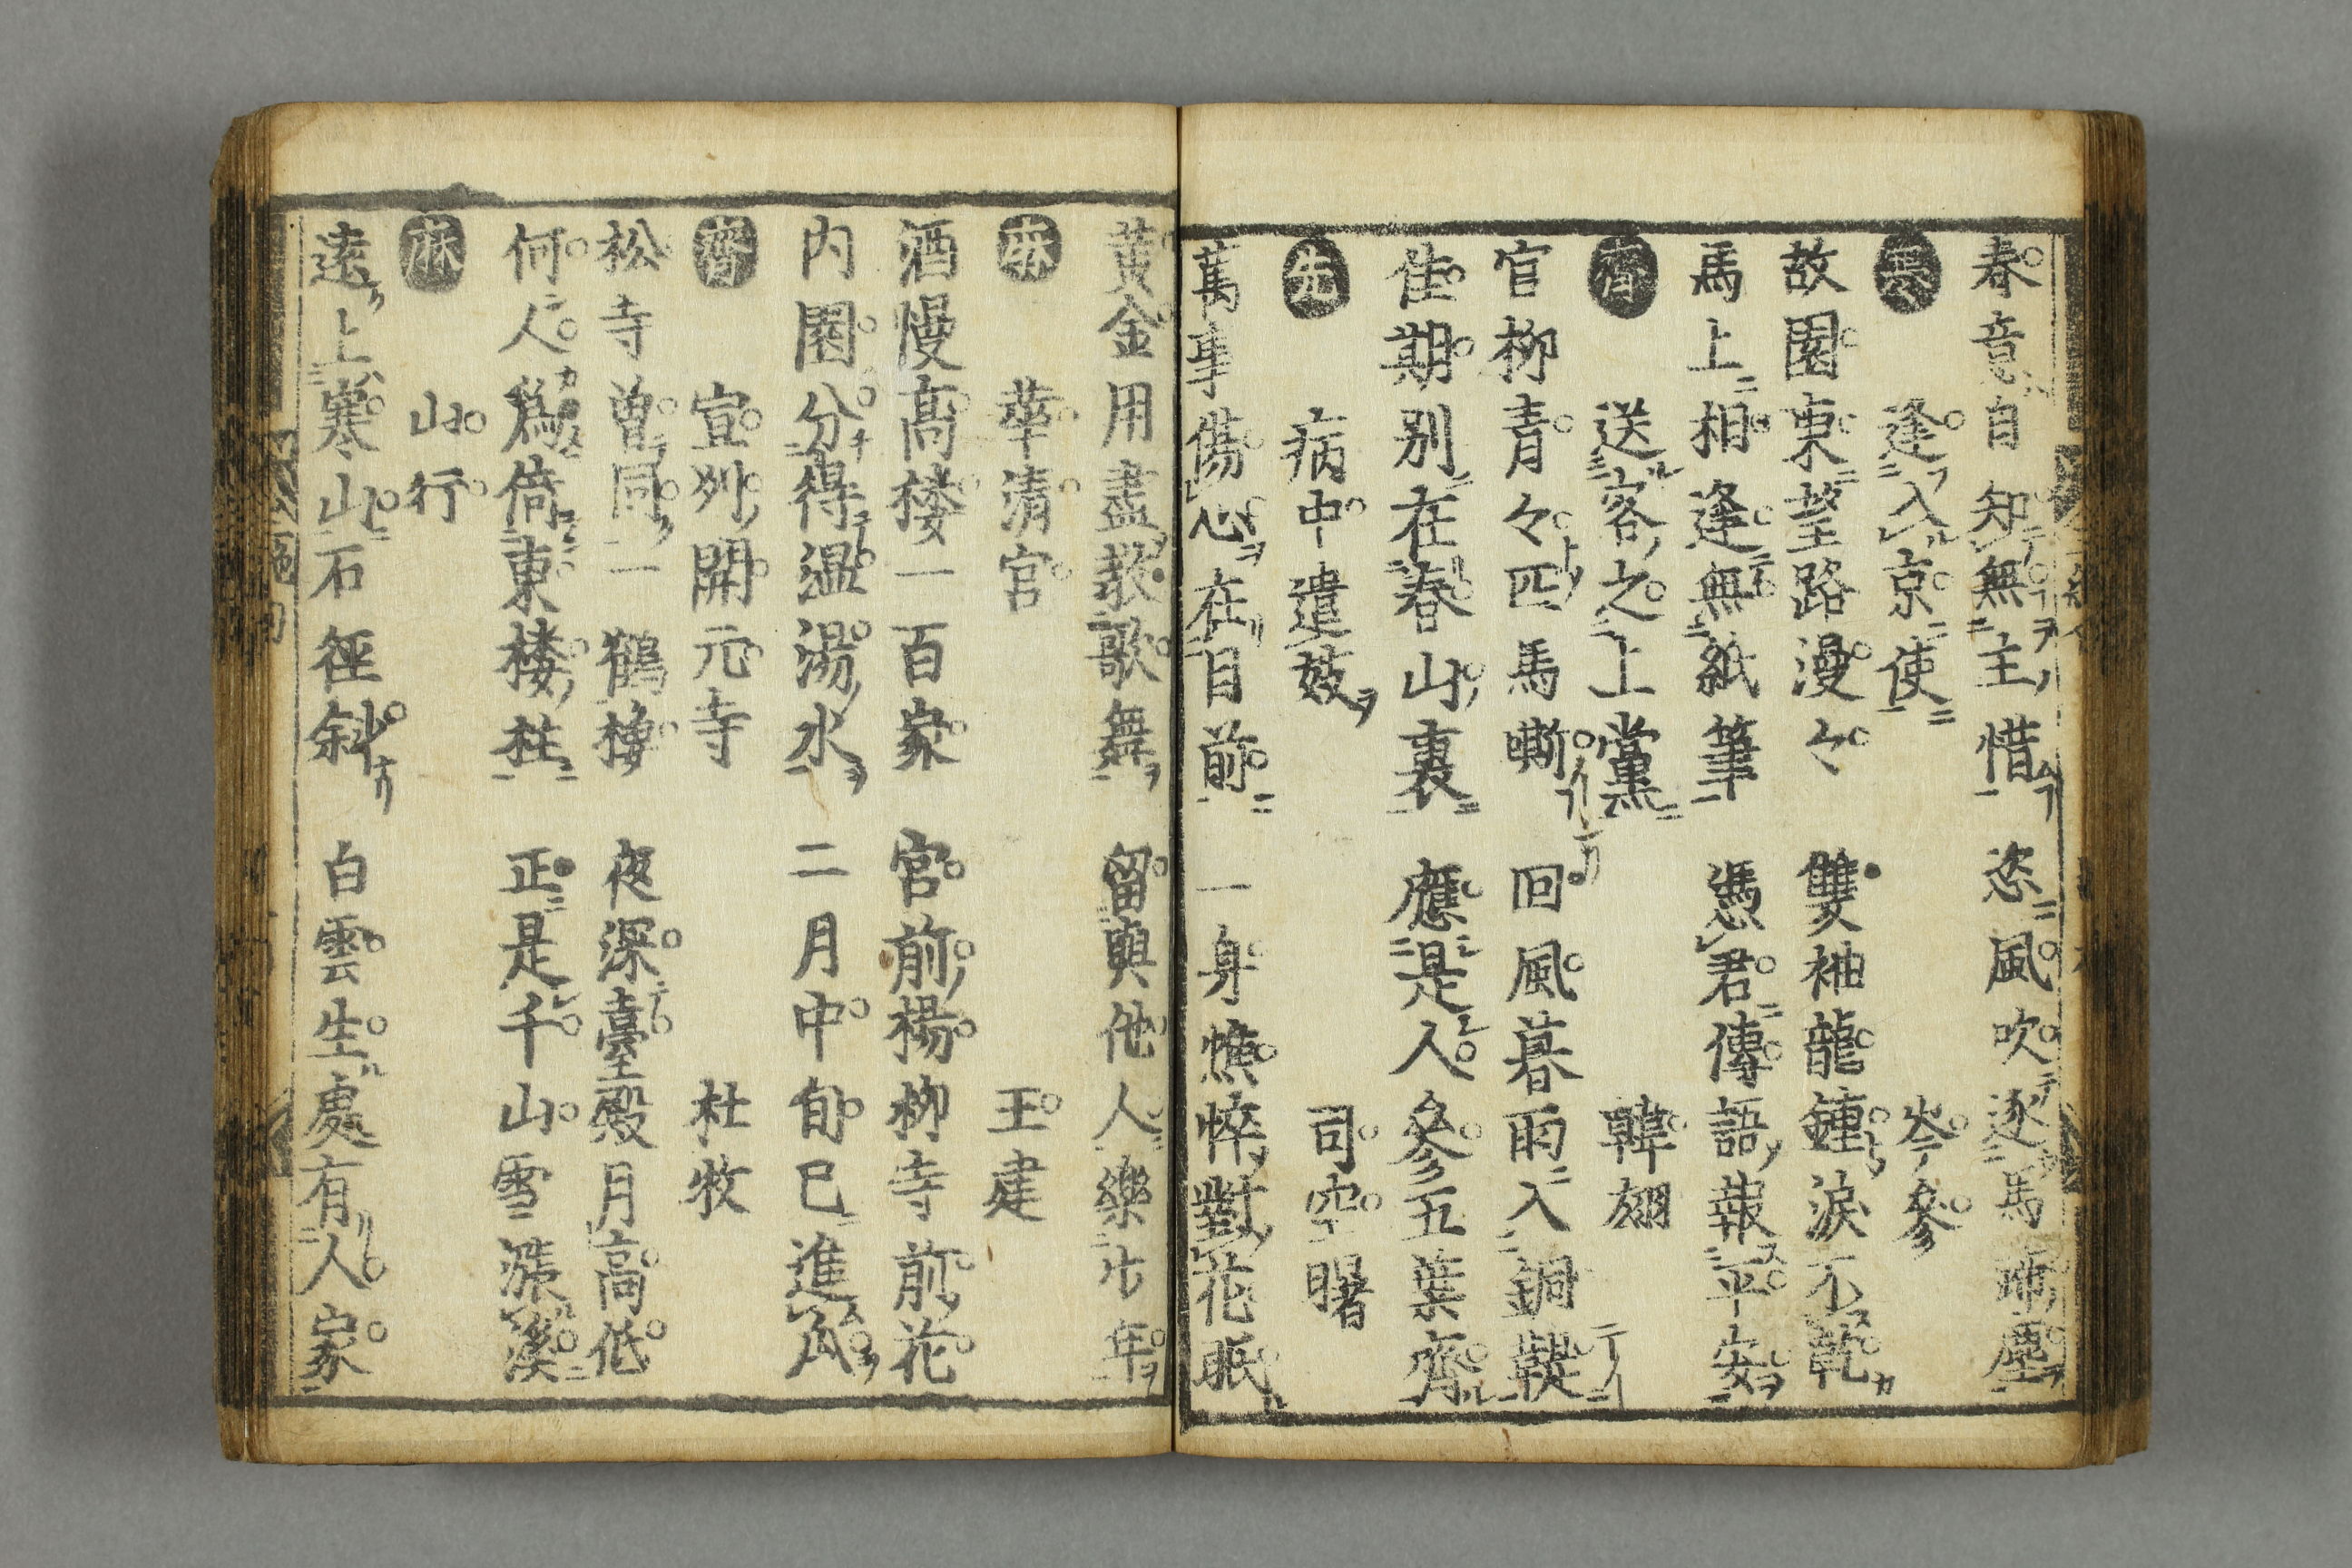 春意自知無主惜 恣風吹逐馬蹄塵
寒 逢入京使 岑參
故園東望路漫々 雙袖龍鍾淚不乾
馬上相逢無紙筆 憑君傳語報平安
齊 送客之上黨 韓翃
官柳青々匹馬嘶 回風暮雨入銅鞮
佳期別在春山裏 應是人參五葉齊
先 病中遣妓 司空曙
萬事傷心在目前 一身憔悴對花眠
黃金用盡教歌舞 留與他人樂少年
麻 華清宮 王建
酒幔高楼一百家 宮前楊柳寺前花
内園分得温湯水 二月中旬已進瓜
齊 宣州開元寺 杜牧
松寺曽同一鶴棲 夜深臺殿月高低
何人爲倚東楼柱 正是千山雪漲溪
麻 山行
遠上寒山石徑斜 白雲生處有人家